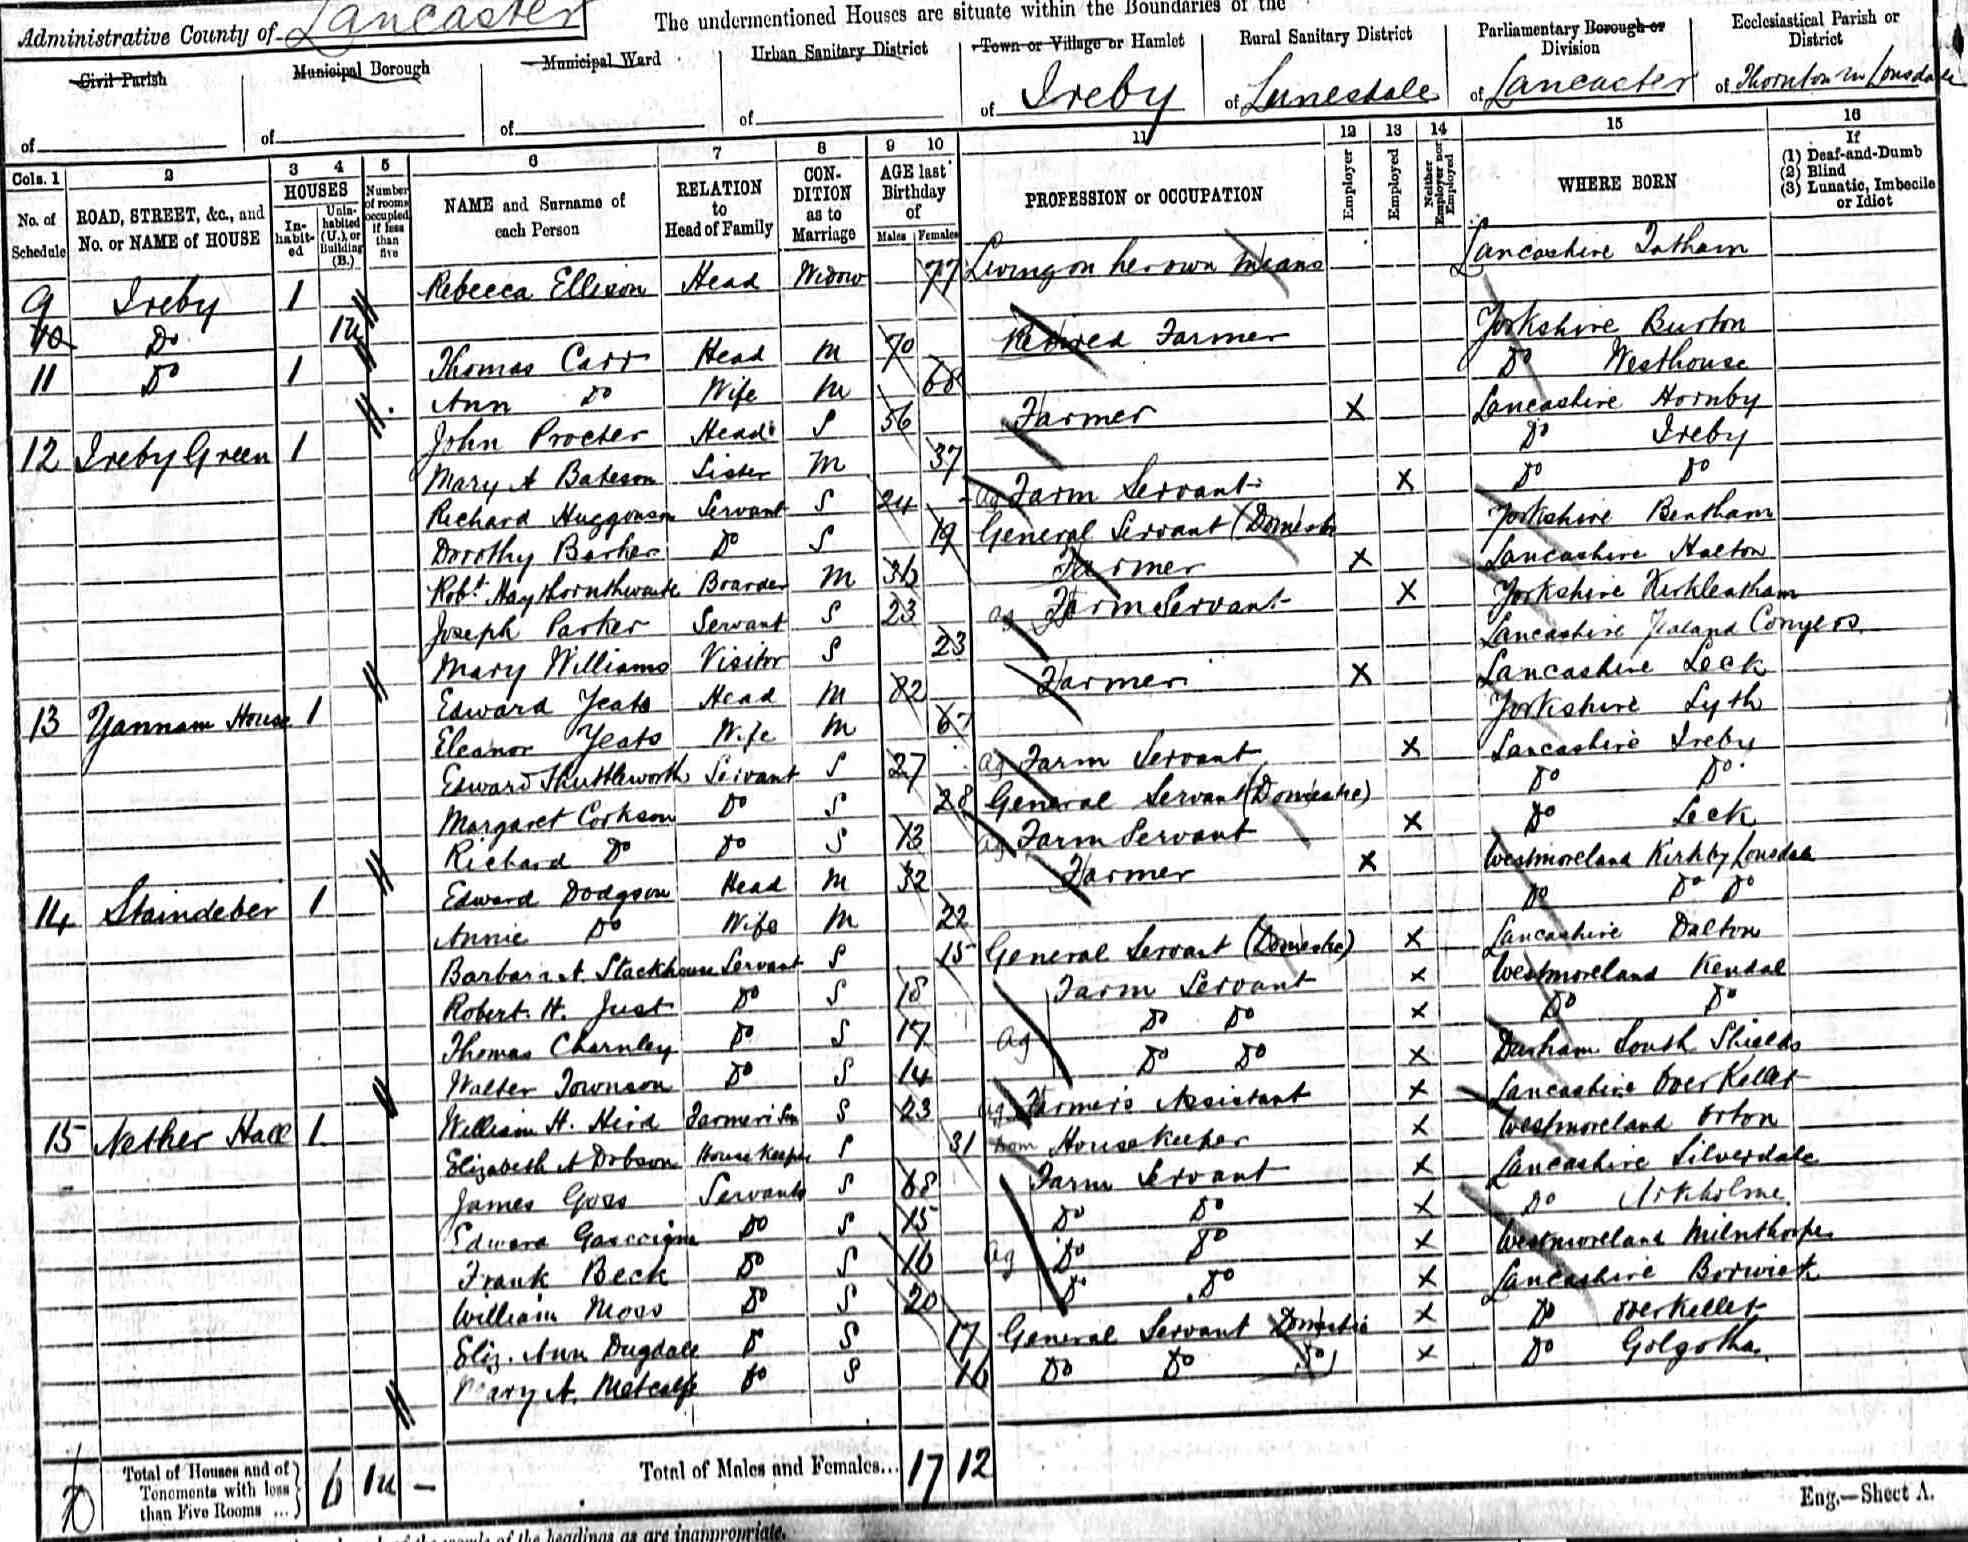 Administrative County of Lancaster The undermentioned Houses are situate within the Boundaries of the
Civil Parish Municipal Borough Municipal Ward Urban Sanitary District Town or Village or Hamlet Rural Sanitary District Parliamentary Borough or Division Ecclesiastical Parish or District
of of of of of Ireby of Lunesdale of Lancaster of Thornton in Lonsdale
Cols. 1 2 3 4 5 6 7 8 9 10 11 12 13 14 15 16
No. of Schedule ROAD, STREET, &c., and No. or NAME of HOUSE HOUSES In-habit-ed Unin-habited (U.), or Building (B.) Number of rooms occupied if less than five NAME and Surname of each Person RELATION to Head of Family CON-DITION as to Marriage AGE last Birthday of Males Females PROFESSION or OCCUPATION Employer Employed Neither Employer nor Employed WHERE BORN If (1) Deaf-and-Dumb (2) Blind (3) Lunatic, Imbecile or Idiot
9 Ireby 1 Rebecca Ellison Head Widow 77 Living on her own means Lancashire Tatham
10 Do 1u
11 Do 1 Thomas Carr Head M 70 Retired Farmer Yorkshire Burton
Ann Do Wife M 68 Do Westhouse
12 Ireby Green 1 John Procter Head S 56 Farmer X Lancashire Hornby
Mary A Bateson Sister M 37 Do Ireby
Richard Huggonson Servant S 24 ag Farm Servant X Do Do
Dorothy Barker Do S 19 General Servant (Domestic Yorkshire Bentham
Robt Haythornthwaite Boarder M 36 Farmer X Lancashire Halton
Joseph Parker Servant S 23 ag Farm Servant X Yorkshire Kirkleatham
Mary Williams Visitor S 23 Lancashire Yealand Conyers
13 Yannam House 1 Edward Yeats Head M 82 Farmer X Lancashire Leck
Eleanor Yeats Wife M 67 Yorkshire Lyth
Edward Shuttleworth Servant S 27 ag Farm Servant X Lancashire Ireby
Margaret Corkson Do S 28 General Servant (Domestic) Do Do
Richard Do Do S 13 ag Farm Servant X Do Leck
14 Staindeber 1 Edward Dodgson Head M 32 Farmer X Westmoreland Kirkby Lonsdale
Annie Do Wife M 22 Do Do Do
Barbara A. Stackhouse Servant S 15 General Servant (Domestic) X Lancashire Dalton
Robert H. Just Do S 18 Farm Servant X Westmoreland Kendal
Thomas Charnley Do S 17 ag Do Do X Do Do
Walter Townson Do S 14 Do Do X Durham South Shields
15 Nether Hall 1 William H. Heird Farmer's Son S 23 ag Farmer's Assistant X Lancashire Over Kellet
Elizabeth A Dobson House Keeper S 31 Dom House Keeper X Westmoreland Orton
James Goss Servants S 68 Farm Servant X Lancashire Silverdale
Edward Gascoigne Do S 15 Do Do X Do Arkholme
Frank Beck Do S 16 ag Do Do X Westmoreland Milnthorpe
William Moss Do S 20 Do Do X Lancashire Borwick
Eliz. Ann Dugdale Do S 17 General Servant Domestic X Do Over Kellet
Mary A. Metcalfe Do S 16 Do Do Do X Do Golgotha
Total of Houses and of Tenements with less than Five Rooms ... 6 1u — Total of Males and Females... 17 12
Eng.—Sheet A.
of the headings as are inappropriate.